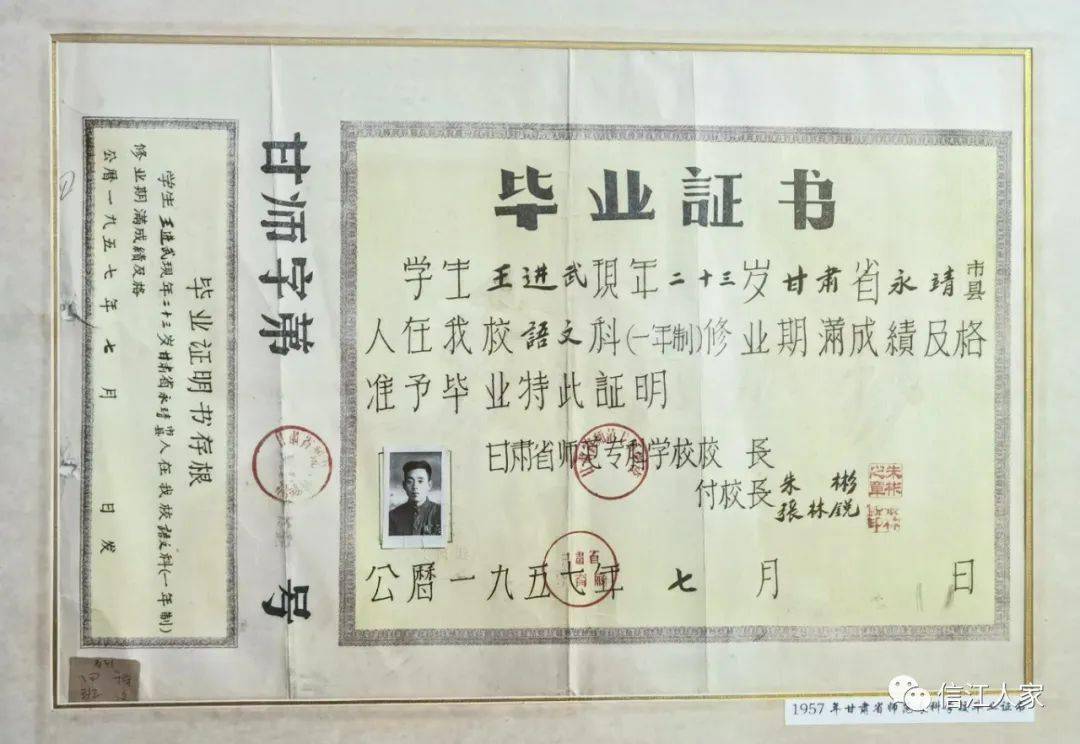 毕业証书
学生王进武現年二十三岁甘肃省永靖市县
人在我校語文科(一年制)修业期滿成績及格
准予毕业特此証明
甘肃省师范专科学校校長
付校長
朱彬
張林銳
公曆一九五七年七月 日
朱彬之章
甘师字第 号
毕业证明书存根
学生王进武現年二十三岁甘肃省永靖市县人在我校語文科(一年制)
修业期滿成績及格
公曆一九五七年七月 日发
1957年甘肃省师范专科学校毕业证书
信江人家